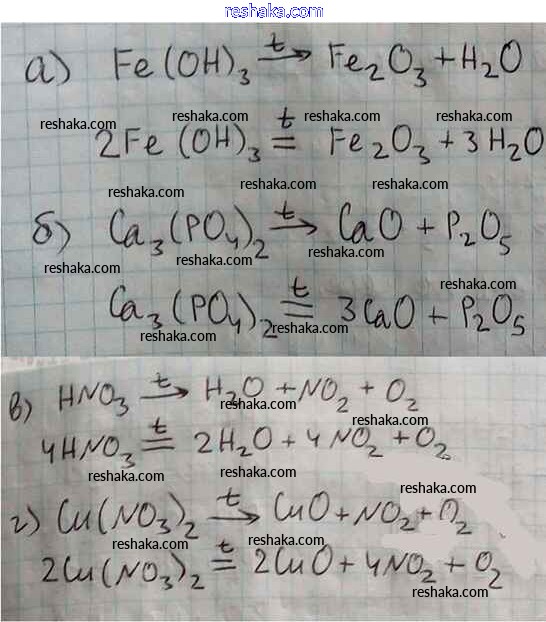 reshaka.com
а) Fe(OH)₃ —t→ Fe₂O₃ + H₂O
reshaka.com reshaka.com reshaka.com
2Fe(OH)₃ =t= Fe₂O₃ + 3H₂O
reshaka.com reshaka.com
б) Ca₃(PO₄)₂ —t→ CaO + P₂O₅
reshaka.com reshaka.com reshaka.com
reshaka.com
Ca₃(PO₄)₂ =t= 3CaO + P₂O₅
reshaka.com reshaka.com reshaka.com
в) HNO₃ —t→ H₂O + NO₂ + O₂
reshaka.com
4HNO₃ =t= 2H₂O + 4NO₂ + O₂
reshaka.com reshaka.com
reshaka.com
г) Cu(NO₃)₂ —t→ CuO + NO₂ + O₂
reshaka.com reshaka.com
2Cu(NO₃)₂ =t= 2CuO + 4NO₂ + O₂
reshaka.com reshaka.com